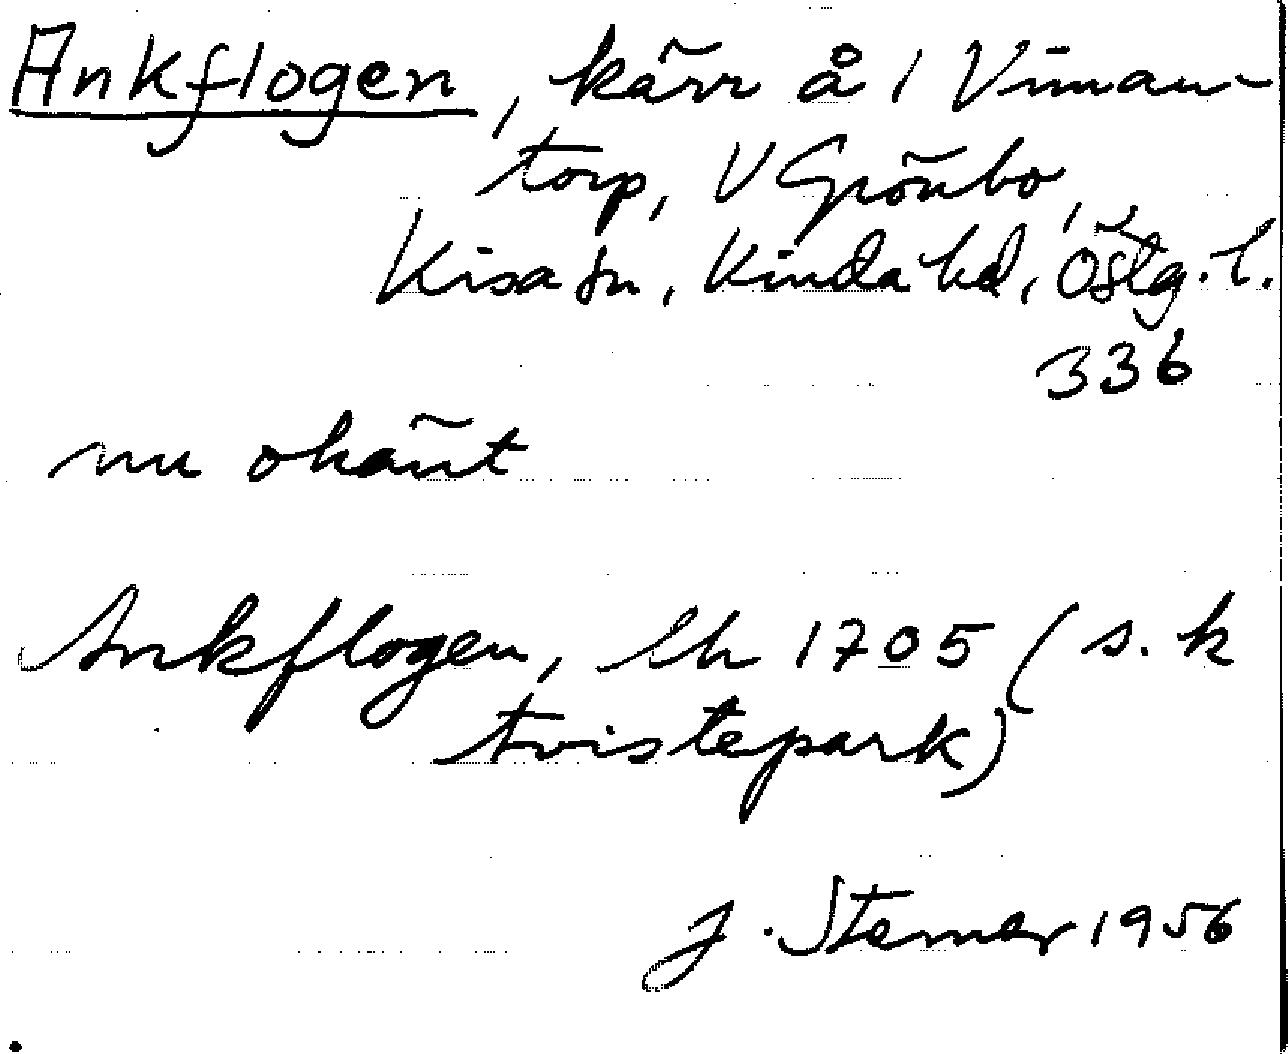 Ankflogen, kärr å 1 Viman-
torp, V Grönbo,
Kisa sn, Kinda hd, Östg. l.
336
nu okänt
Ankflogen, lh 1705 (s.k
tvistepark)
J. Sterner 1956